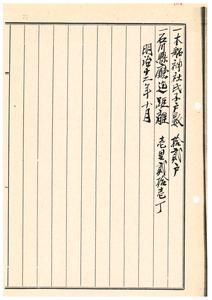 一本神社氏子戸数 拾貳戸
一石川縣廳迠距離 壱里貳拾壱丁
明治十二年十月